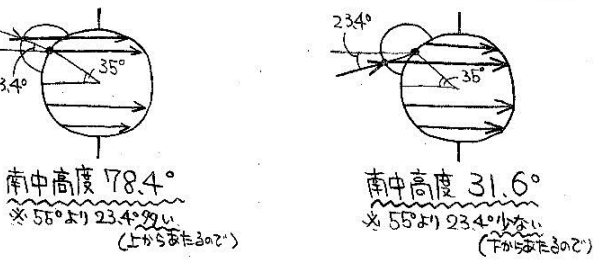 3.4°
35°
南中高度 78.4°
※ 55°より 23.4°多い
(上からあたるので)
23.4°
35°
南中高度 31.6°
※ 55°より 23.4°少ない
(下からあたるので)